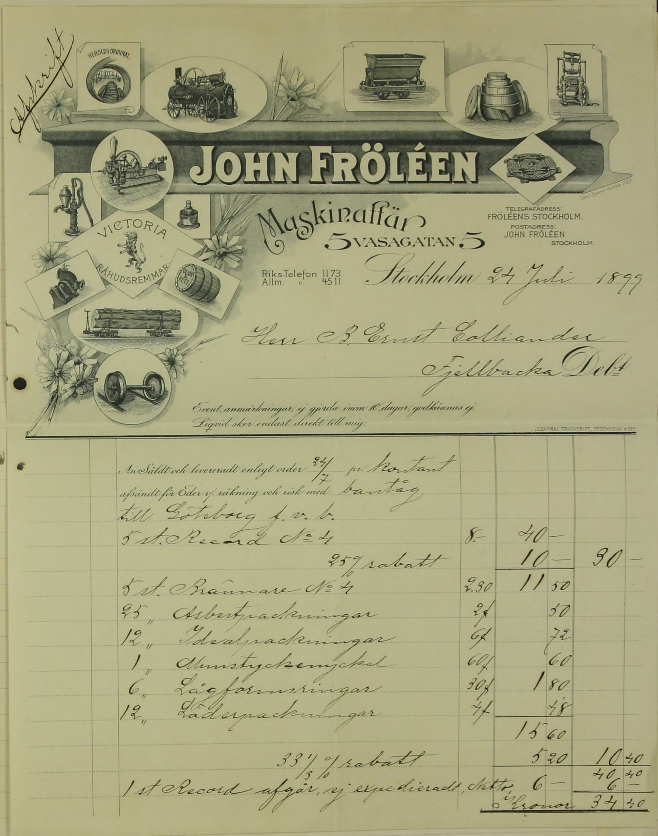 Afskrift
HEROLDS ORIGINAL
JOHN FRÖLÉEN
Maskinaffär
5 VASAGATAN 5
TELEGRAFADRESS:
FRÖLÉENS STOCKHOLM.
POSTADRESS:
JOHN FRÖLÉEN
STOCKHOLM.
VICTORIA
RÅHUDSREMMAR
Riks Telefon 1173
Allm. " 4511
Stockholm 24 Juli 1899
Herr B. Ernst Colliander
Fjellbacka Debt
Event. anmärkningar, ej gjorda inom 10 dagar, godkännas ej.
Liqvid sker endast direkt till mig.
CENTRAL-TRYCKERIET, STOCKHOLM
An Såldt och levereradt enligt order 24/7 pr kontant
afsändt för Eder räkning och risk med bantåg
till Göteborg f. v. b.
5 st. Record No 4 8.- 40 -
25 % rabatt 10 - 30 -
5 st. Brännare No 4 2.30 11 50
25 " Asbestpackningar 2f 50
12 " Idealpackningar 6f 72
1 " Munstycksnyckel 60f 60
6 " Lågformsringar 30f 1 80
12 " Läderpackningar 4f 48
15 60
33 1/3 % rabatt 5 20 10 40
40 40
1 st Record afgår, ej expedieradt, Netto 6 - 6 -
Kronor 34 40